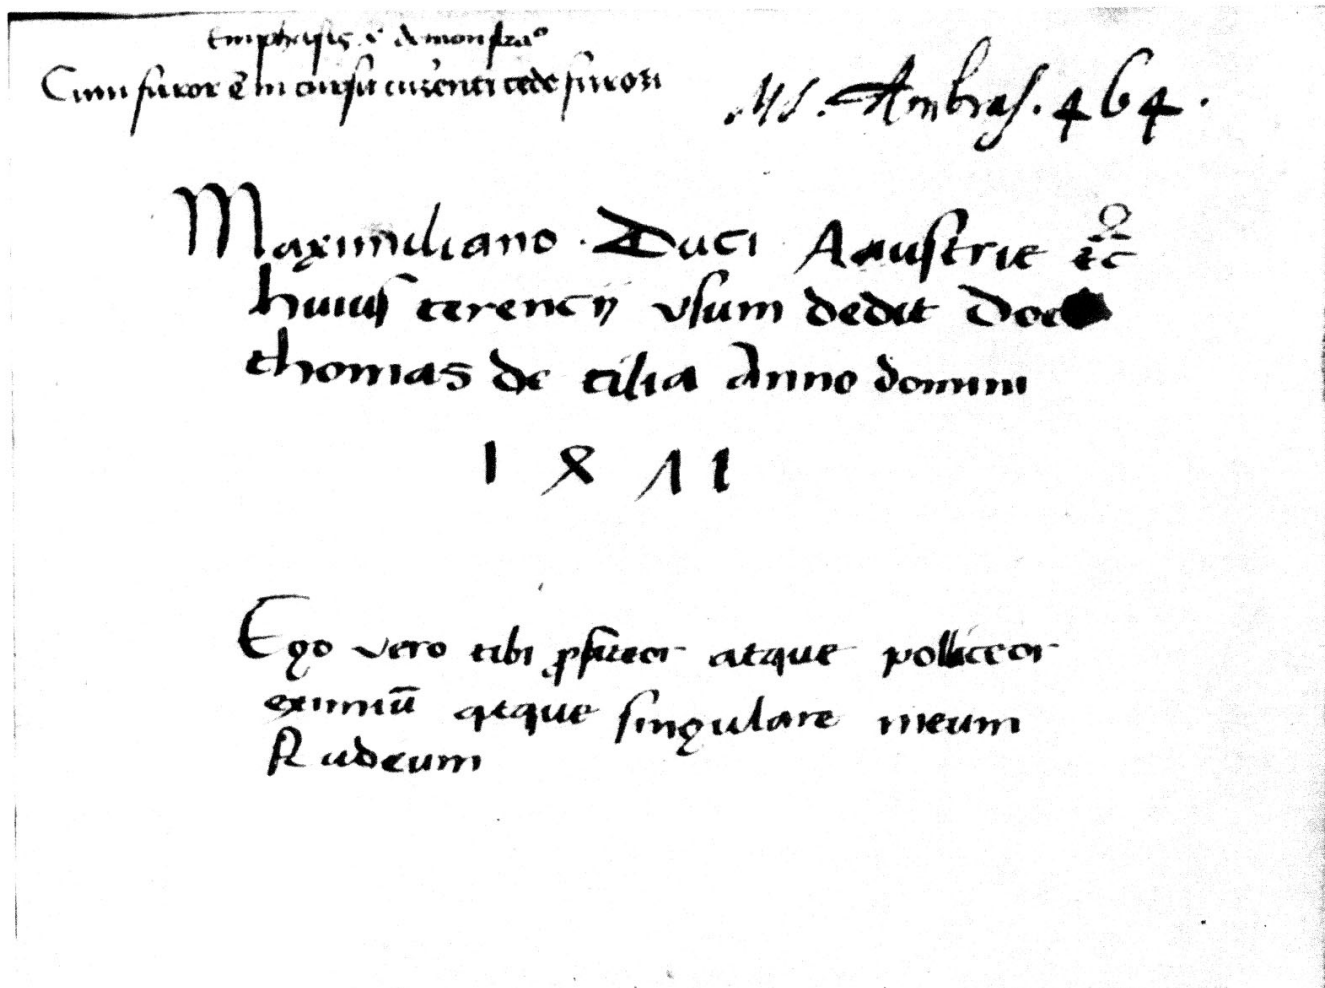 Emphasis ē demonstrao
Cum furor ē in cursu currenti cede furori
MS. Ambras. 464.
Maximiliano Duci Aaustrie etc
huius terencij vsum dedit Doc
thomas de cilia Anno domini
1 8 Λ 1
Ego vero tibi ꝓfiteor atque polliceor
eximiū atque singulare meum